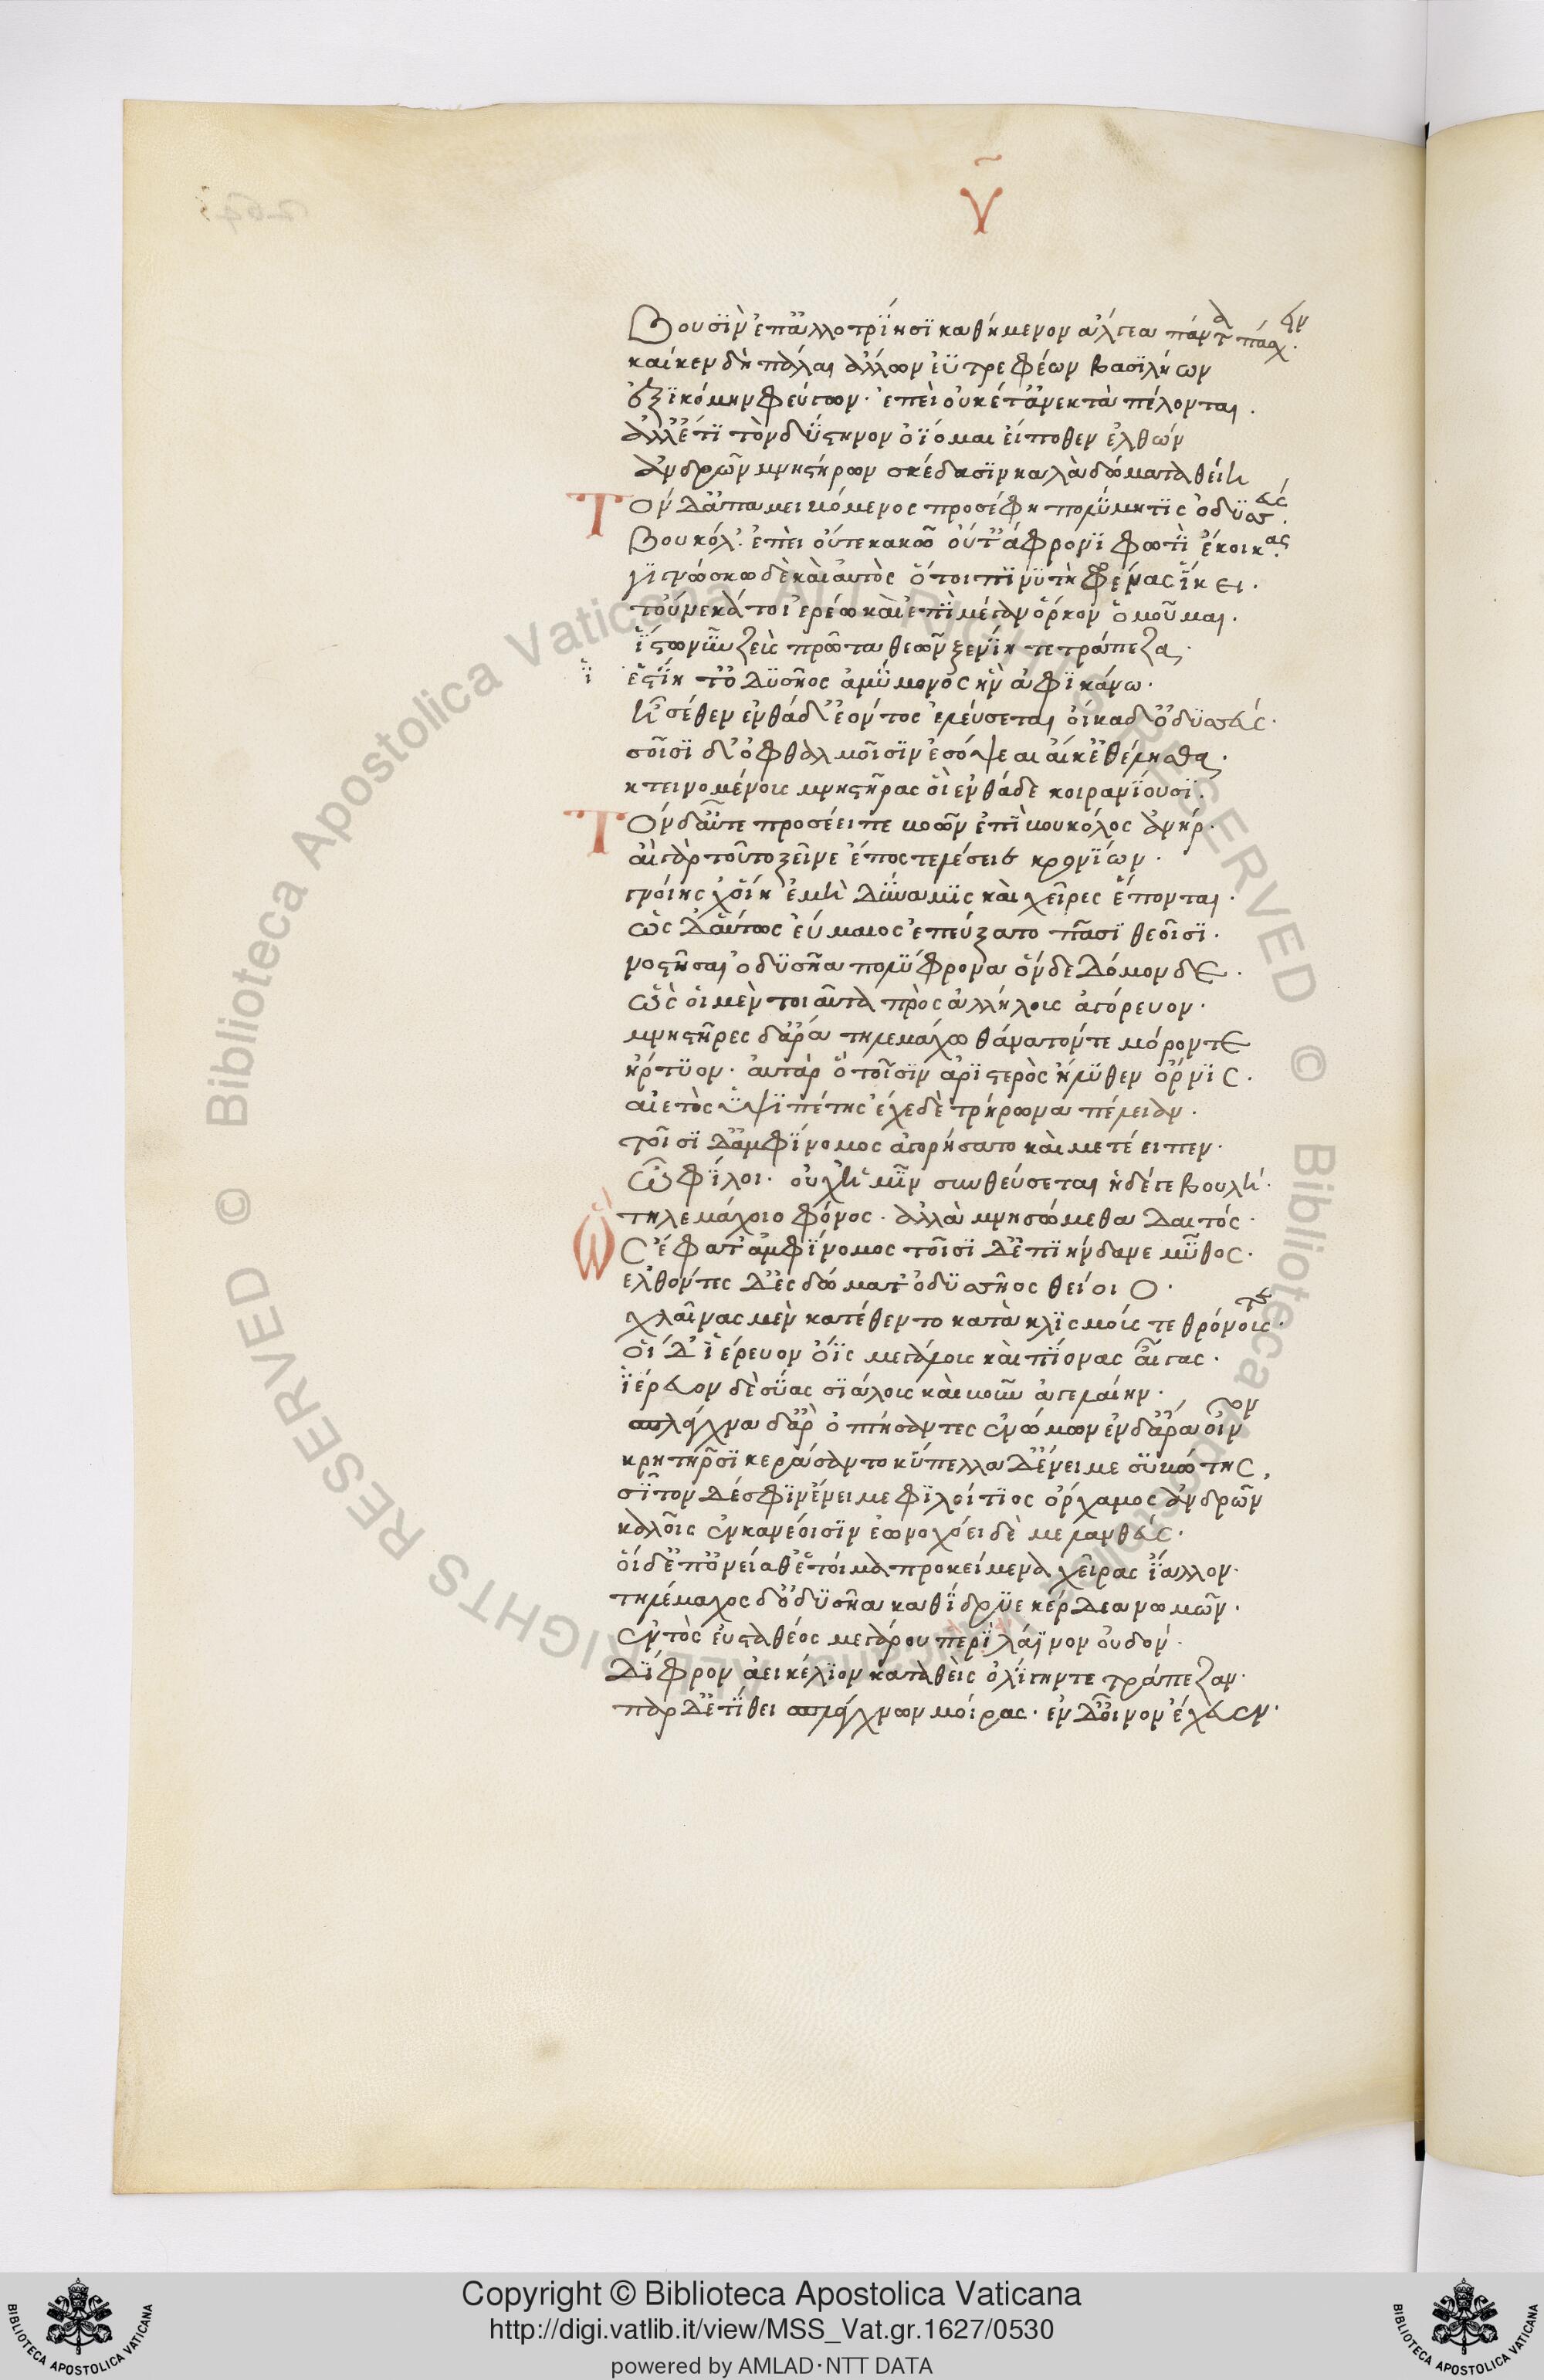 υ
Βουσὶν ἐπ' ἀλλοτρίησι καθήμενον ἄλγεα πάσχειν.
καί κεν δὴ πάλαι ἄλλων ἐϋτρεφέων βασιλήων
ἐξικόμην φεύγων· ἐπεὶ οὐκέτ' ἀνεκτὰ πέλονται.
ἀλλ' ἔτι τὸν δύστηνον ὀΐομαι εἴποθεν ἐλθών
ἀνδρῶν μνηστήρων σκέδασιν κατὰ δώματα θείη
Τὸν δ' ἀπαμειβόμενος προσέφη πολύμητις ὀδυσσεύς.
Βουκόλ' ἐπεὶ οὔτε κακῶ οὔτ' ἄφρονι φωτὶ ἔοικας.
γιγνώσκω δὲ καὶ αὐτὸς ὅ τοι πινυτὴ φρένας ἵκει.
τοὔνεκά τοι ἐρέω καὶ ἐπὶ μέγαν ὅρκον ὀμοῦμαι.
ἴστω νῦν ζεὺς πρῶτα θεῶν ξενίη τε τράπεζα.
ἱ ἑστίη τ' ὀδυσῆος ἀμύμονος ἣν ἀφικάνω.
ἦ σέθεν ἐνθάδ' ἐόντος ἐλεύσεται οἴκαδ' ὀδυσσεύς.
σοῖσι δ' ὀφθαλμοῖσιν ἐσόψεαι αἴκ' ἐθέλησθα.
κτεινομένους μνηστῆρας οἳ ἐνθάδε κοιρανέουσι.
Τὸν δ' αὖτε προσέειπε βοῶν ἐπὶ βουκόλος ἀνήρ.
αἲ γὰρ τοῦτο ξεῖνε ἔπος τελέσειε κρονίων.
γνοίης χ' οἵη ἐμὴ δύναμις καὶ χεῖρες ἕπονται.
ὣς δ' αὔτως εὔμαιος ἐπεύξατο πᾶσι θεοῖσι.
νοστῆσαι ὀδυσῆα πολύφρονα ὅνδε δόμονδε.
ὣς οἱ μὲν τοιαῦτα πρὸς ἀλλήλους ἀγόρευον.
μνηστῆρες δ' ἄρα τηλεμάχω θάνατόν τε μόρον τε
ἤρτυον. αὐτὰρ ὁ τοῖσιν ἀριστερὸς ἤλυθεν ὄρνις.
αἰετὸς ὑψιπέτης ἔχε δὲ τρήρωνα πέλειαν.
τοῖσι δ' ἀμφίνομος ἀγορήσατο καὶ μετέειπεν.
Ὦ φίλοι. οὐχ ἡμῖν συνθεύσεται ἥδε γε βουλή.
τηλεμάχοιο φόνος. ἀλλὰ μνησώμεθα δαιτός.
Ὣς ἔφατ' ἀμφίνομος τοῖσι δ' ἐπιήνδανε μῦθος.
ἐλθόντες δ' ἐς δώματ' ὀδυσσῆος θείοιο.
χλαίνας μὲν κατέθεντο κατὰ κλισμούς τε θρόνους τε.
οἱ δ' ἱέρευον ὄϊς μεγάλους καὶ πίονας αἶγας.
ἱέρευον δὲ σύας σιάλους καὶ βοῦν ἀγελαίην.
σπλάγχνα δ' ἄρ' ὀπτήσαντες ἐνώμων ἐν δ' ἄρα οἶνον
κρητῆρσι κεράσαντο κύπελλα δ' ἔνειμε συβώτης,
σῖτον δέ σφιν ἔνειμε φιλοίτιος ὄρχαμος ἀνδρῶν
καλοῖς ἐν κανέοισιν ἐωνοχόει δὲ μελανθεύς.
οἱ δ' ἐπ' ὀνείαθ' ἑτοῖμα προκείμενα χεῖρας ἴαλλον.
τηλέμαχος δ' ὀδυσῆα καθίδρυε κέρδεα νωμῶν.
ἐντὸς ἐϋσταθέος μεγάρου περὶ λάϊνον οὐδόν.
δίφρον ἀεικέλιον καταθεὶς ὀλίγην τε τράπεζαν.
πὰρ δ' ἐτίθει σπλάγχνων μοίρας. ἐν δ' οἶνον ἔχευεν.
Copyright © Biblioteca Apostolica Vaticana
http://digi.vatlib.it/view/MSS_Vat.gr.1627/0530
powered by AMLAD·NTT DATA